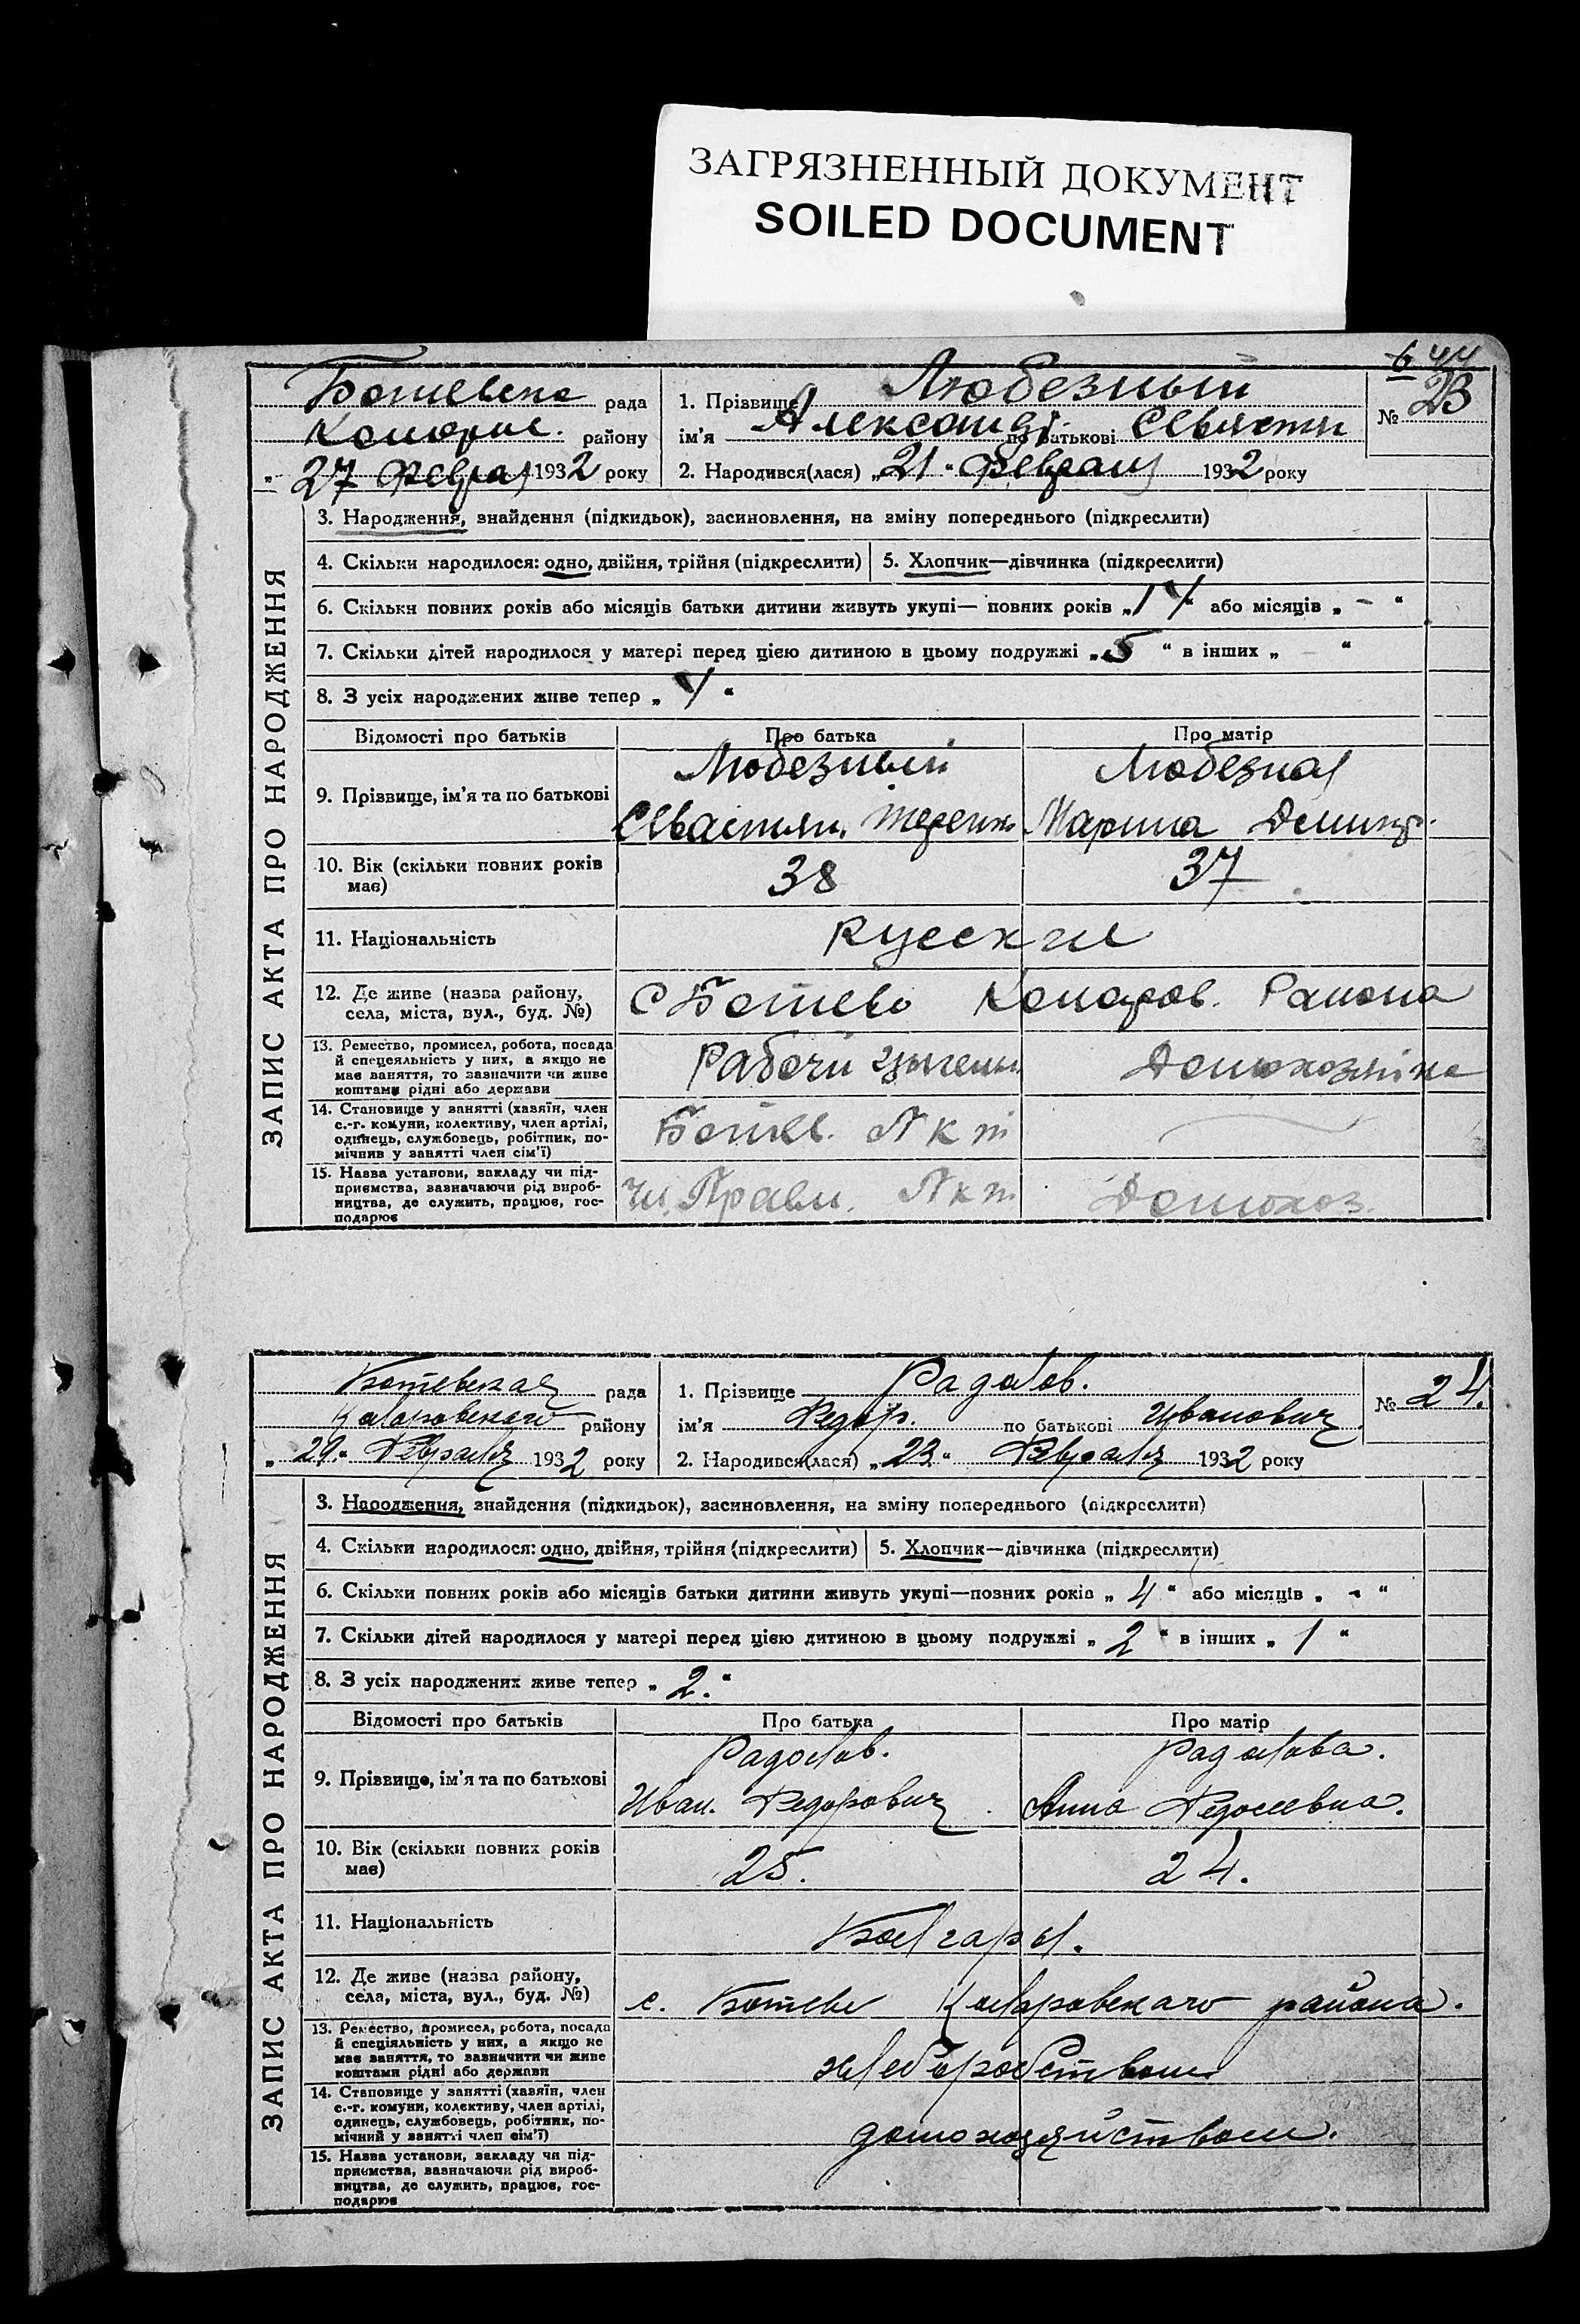 ЗАГРЯЗНЕННЫЙ ДОКУМЕНТ
SOILED DOCUMENT
6 44
рада
1. Прізвище Любезный
№ 23
району
ім'я Александр по батькові
27 1932 року
2. Народився(лася) „21“ Февраля 1932 року
ЗАПИС АКТА ПРО НАРОДЖЕННЯ
3. Народження, знайдення (підкидьок), засиновлення, на зміну попереднього (підкреслити)
4. Скільки народилося: одно, двійня, трійня (підкреслити)
5. Хлопчик—дівчинка (підкреслити)
6. Скільки повних років або місяців батьки дитини живуть укупі— повних років „ “ або місяців „ – “
7. Скільки дітей народилося у матері перед цією дитиною в цьому подружжі „5“ в інших „ – “
8. З усіх народжених живе тепер „ “
Відомості про батьків
Про батька
Про матір
9. Прізвище, ім'я та по батькові
Любезный
Любезная
Марина
10. Вік (скільки повних років має)
38
37
11. Національність
Русские
12. Де живе (назва району,
села, міста, вул., буд. №)
С Ботево Коларов. Района
13. Ремество, промисел, робота, посада
й спеціяльність у них, а якщо не
має заняття, то зазначити чи живе
коштами рідні або держави
Рабочи
14. Становище у занятті (хазяїн, член
с.-г. комуни, колективу, член артілі,
одинець, службовець, робітник, по-
мічник у занятті член сім'ї)
15. Назва установи, закладу чи під-
приємства, зазначаючи рід вироб-
ництва, де служить, працює, гос-
подарює
Домохоз.
Ботевская рада
1. Прізвище Радолов.
№ 24.
Коларовского району
ім'я Федор. по батькові Иванович
„29“ Февраля 1932 року
2. Народився(лася) „23.“ Февраля 1932 року
ЗАПИС АКТА ПРО НАРОДЖЕННЯ
3. Народження, знайдення (підкидьок), засиновлення, на зміну попереднього (підкреслити)
4. Скільки народилося: одно, двійня, трійня (підкреслити)
5. Хлопчик—дівчинка (підкреслити)
6. Скільки повних років або місяців батьки дитини живуть укупі—повних років „ 4 “ або місяців „ - “
7. Скільки дітей народилося у матері перед цією дитиною в цьому подружжі „ 2 “ в інших „ 1 “
8. З усіх народжених живе тепер „ 2. “
Відомості про батьків
Про батька
Про матір
9. Прізвище, ім'я та по батькові
Радолов.
Радолова.
Иван. Федорович
Анна Федосеевна.
10. Вік (скільки повних років має)
25.
24.
11. Національність
Болгары.
12. Де живе (назва району,
села, міста, вул., буд. №)
с. Ботево Коларовского района.
13. Ремество, промисел, робота, посада
й спеціяльність у них, а якщо не
має заняття, то зазначити чи живе
коштами рідні або держави
хлеборобством
14. Становище у занятті (хазяїн, член
с.-г. комуни, колективу, член артілі,
одинець, службовець, робітник, по-
мічний у занятті член сім'ї)
домохозяйством.
15. Назва установи, закладу чи під-
приємства, зазначаючи рід вироб-
ництва, де служить, працює, гос-
подарює